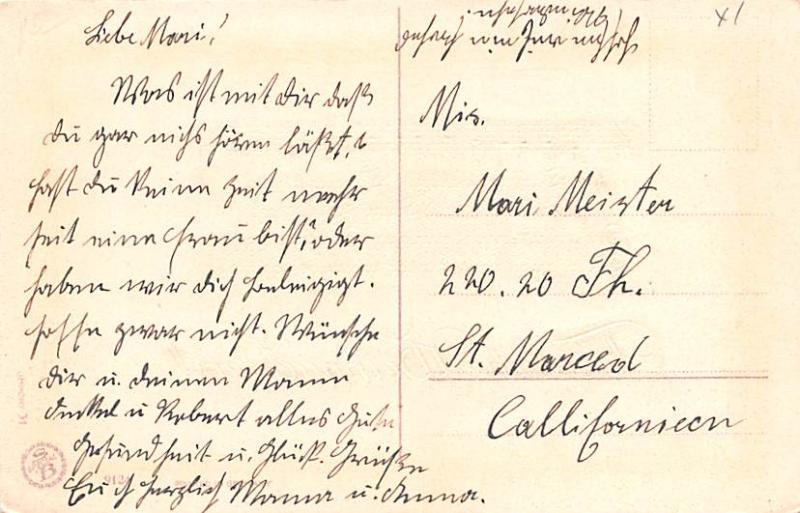 Liebe Mari!
Was ist mit dir daß
du gar nichs hören läßt,
hast du keine Zeit mehr
seit eine Frau bist, oder
haben wir dich beleigigt.
hoffe zwar nicht. Wünsche
dir u. deinen Mann
u Robert alles Gute
Gesundheit u. Glück. Grüße
Euch herzlich Mama u. Anna.
Mis.
Mari Meister
220. 20 Th.
St. Marced
Callifornieen